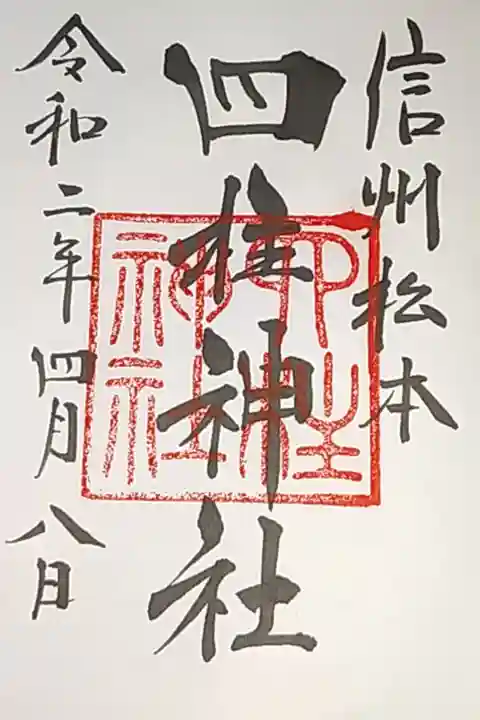 信州松本
四柱神社
四柱神社
令和二年四月八日